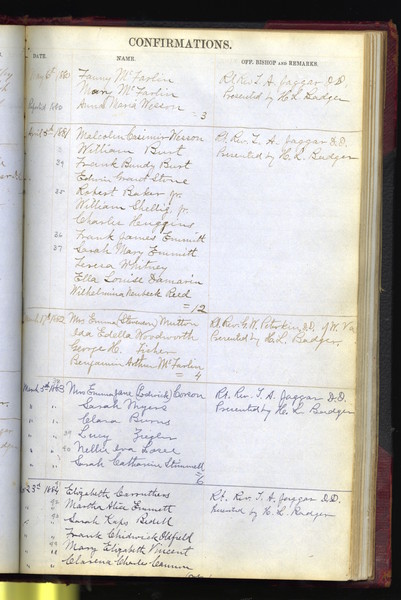 CONFIRMATIONS.
DATE. NAME. OFF. BISHOP AND REMARKS.
1880 Fanny McFarlin Rt. Rev. T. A. Jaggar D.D.
Mary McFarlin Presented by H. L. Badger
1880 Anna Maria Wesson
= 3
April 3d 1881 Malcolm Casimir Wesson Rt. Rev. T. A. Jaggar D.D.
William Burt Presented by H. L. Badger
Frank Bundy Burt
Edwin Grant Stone
Robert Baker Jr.
William Shellig Jr.
Charles Huggins
36 Frank James Emmitt
37 Sarah Mary Emmett
Teresa Whitney
Ella Louise Damarin
Wilhelmina Reed
= 12
1882 Mrs Emma (Stewart) Mutton Rt. Rev. G. W. Peterkin D.D. of W. Va
Ida Edella Woodworth Presented by H. L. Badger.
George H. Fisher
Benjamin Arthur McFarlin
= 4
March 5th 1883 Mrs Emma Jane Corson Rt. Rev. T. A. Jaggar D.D.
" " Sarah Myers Presented by H. L. Badger
" " Clara Burns
" " 39 Lucy Ziegler
" " 40 Nellie Iva
" " Sarah Catharine Stimmell
= 6
23d 1884 Elizabeth Carruthers Rt. Rev. T. A. Jaggar D.D.
" " Martha Alice Emmett Presented by H. L. Badger
" " Sarah Kaps Bidell
" " Frank Chidwick Oldfield
" " Mary Elizabeth Vincent
" " Clarence Charles Cannon